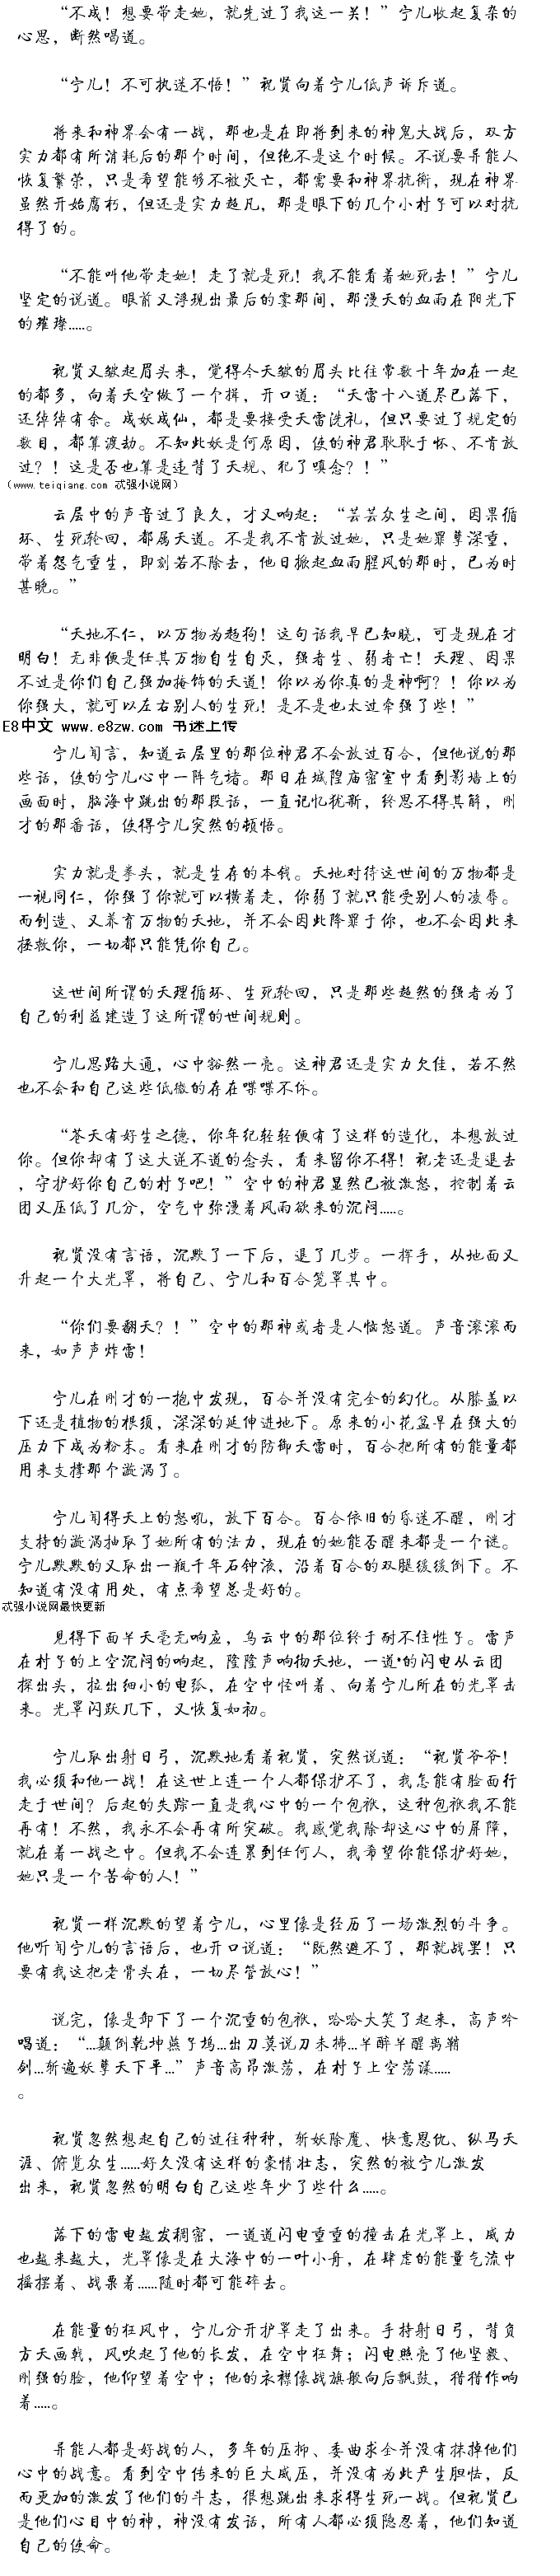 “不成！想要带走她，就先过了我这一关！”宁儿收起复杂的
心思，断然喝道。
“宁儿！不可执迷不悟！”祝贤向着宁儿低声诉斥道。
将来和神界会有一战，那也是在即将到来的神鬼大战后，双方
实力都有所消耗后的那个时间，但绝不是这个时候。不说要异能人
恢复繁荣，只是希望能够不被灭亡，都需要和神界抗衡，现在神界
虽然开始腐朽，但还是实力超凡，那是眼下的几个小村子可以对抗
得了的。
“不能叫他带走她！走了就是死！我不能看着她死去！”宁儿
坚定的说道。眼前又浮现出最后的霎那间，那漫天的血雨在阳光下
的璀璨……。
祝贤又皱起眉头来，觉得今天皱的眉头比往常数十年加在一起
的都多，向着天空做了一个揖，开口道：“天雷十八道尽已落下，
还绰绰有余。成妖成仙，都是要接受天雷洗礼，但只要过了规定的
数目，都算渡劫。不知此妖是何原因，使的神君耿耿于怀、不肯放
过？！这是否也算是违背了天规、犯了嗔念？！”
（www.teiqiang.com 忒强小说网）
云层中的声音过了良久，才又响起：“芸芸众生之间，因果循
环、生死轮回，都属天道。不是我不肯放过她，只是她罪孽深重，
带着怨气重生，即刻若不除去，他日掀起血雨腥风的那时，已为时
甚晚。”
“天地不仁，以万物为超狗！这句话我早已知晓，可是现在才
明白！无非便是任其万物自生自灭，强者生、弱者亡！天理、因果
不过是你们自己强加掩饰的天道！你以为你真的是神啊？！你以为
你强大，就可以左右别人的生死！是不是也太过牵强了些！”
E8中文 www.e8zw.com 书迷上传
宁儿闻言，知道云层里的那位神君不会放过百合，但他说的那
些话，使的宁儿心中一阵气堵。那日在城隍庙密室中看到影墙上的
画面时，脑海中跳出的那段话，一直记忆犹新，终思不得其解，刚
才的那番话，使得宁儿突然的顿悟。
实力就是拳头，就是生存的本钱。天地对待这世间的万物都是
一视同仁，你强了你就可以横着走，你弱了就只能受别人的凌辱。
而创造、又养育万物的天地，并不会因此降罪于你，也不会因此来
拯救你，一切都只能凭你自己。
这世间所谓的天理循环、生死轮回，只是那些超然的强者为了
自己的利益建造了这所谓的世间规则。
宁儿思路大通，心中豁然一亮。这神君还是实力欠佳，若不然
也不会和自己这些低微的存在喋喋不休。
“苍天有好生之德，你年纪轻轻便有了这样的造化，本想放过
你。但你却有了这大逆不道的念头，看来留你不得！祝老还是退去
，守护好你自己的村子吧！”空中的神君显然已被激怒，控制着云
团又压低了几分，空气中弥漫着风雨欲来的沉闷……。
祝贤没有言语，沉默了一下后，退了几步。一挥手，从地面又
升起一个大光罩，将自己、宁儿和百合笼罩其中。
“你们要翻天？！”空中的那神或者是人恼怒道。声音滚滚而
来，如声声炸雷！
宁儿在刚才的一抱中发现，百合并没有完全的幻化。从膝盖以
下还是植物的根须，深深的延伸进地下。原来的小花盆早在强大的
压力下成为粉末。看来在刚才的防御天雷时，百合把所有的能量都
用来支撑那个漩涡了。
宁儿闻得天上的怒吼，放下百合。百合依旧的昏迷不醒，刚才
支持的漩涡抽取了她所有的法力，现在的她能否醒来都是一个谜。
宁儿默默的又取出一瓶千年石钟液，沿着百合的双腿缓缓倒下。不
知道有没有用处，有点希望总是好的。
忒强小说网最快更新
见得下面半天毫无响应，乌云中的那位终于耐不住性子。雷声
在村子的上空沉闷的响起，隆隆声响彻天地，一道·的闪电从云团
探出头，拉出细小的电弧，在空中怪叫着、向着宁儿所在的光罩击
来。光罩闪跃几下，又恢复如初。
宁儿取出射日弓，沉默地看着祝贤，突然说道：“祝贤爷爷！
我必须和他一战！在这世上连一个人都保护不了，我怎能有脸面行
走于世间？后起的失踪一直是我心中的一个包袱，这种包袱我不能
再有！不然，我永不会再有所突破。我感觉我除却这心中的屏障，
就在着一战之中。但我不会连累到任何人，我希望你能保护好她，
她只是一个苦命的人！”
祝贤一样沉默的望着宁儿，心里像是经历了一场激烈的斗争。
他听闻宁儿的言语后，也开口说道：“既然避不了，那就战罢！只
要有我这把老骨头在，一切尽管放心！”
说完，像是卸下了一个沉重的包袱，哈哈大笑了起来，高声吟
唱道：“…颠倒乾坤燕子坞…出刀莫说刀未拂…半醉半醒离鞘
剑…斩遍妖孽天下平…”声音高昂激荡，在村子上空荡漾……
。
祝贤忽然想起自己的过往种种，斩妖除魔、快意恩仇、纵马天
涯、俯览众生……好久没有这样的豪情壮志，突然的被宁儿激发
出来，祝贤忽然的明白自己这些年少了些什么……。
落下的雷电越发稠密，一道道闪电重重的撞击在光罩上，威力
也越来越大，光罩像是在大海中的一叶小舟，在肆虐的能量气流中
摇摆着、战栗着……随时都可能碎去。
在能量的狂风中，宁儿分开护罩走了出来。手持射日弓，背负
方天画戟，风吹起了他的长发，在空中狂舞；闪电照亮了他坚毅、
刚强的脸，他仰望着空中；他的衣襟像战旗般向后飘鼓，猎猎作响
着……。
异能人都是好战的人，多年的压抑、委曲求全并没有抹掉他们
心中的战意。看到空中传来的巨大威压，并没有为此产生胆怯，反
而更加的激发了他们的斗志，很想跳出来求得生死一战。但祝贤已
是他们心目中的神，神没有发话，所有人都必须隐忍着，他们知道
自己的使命。